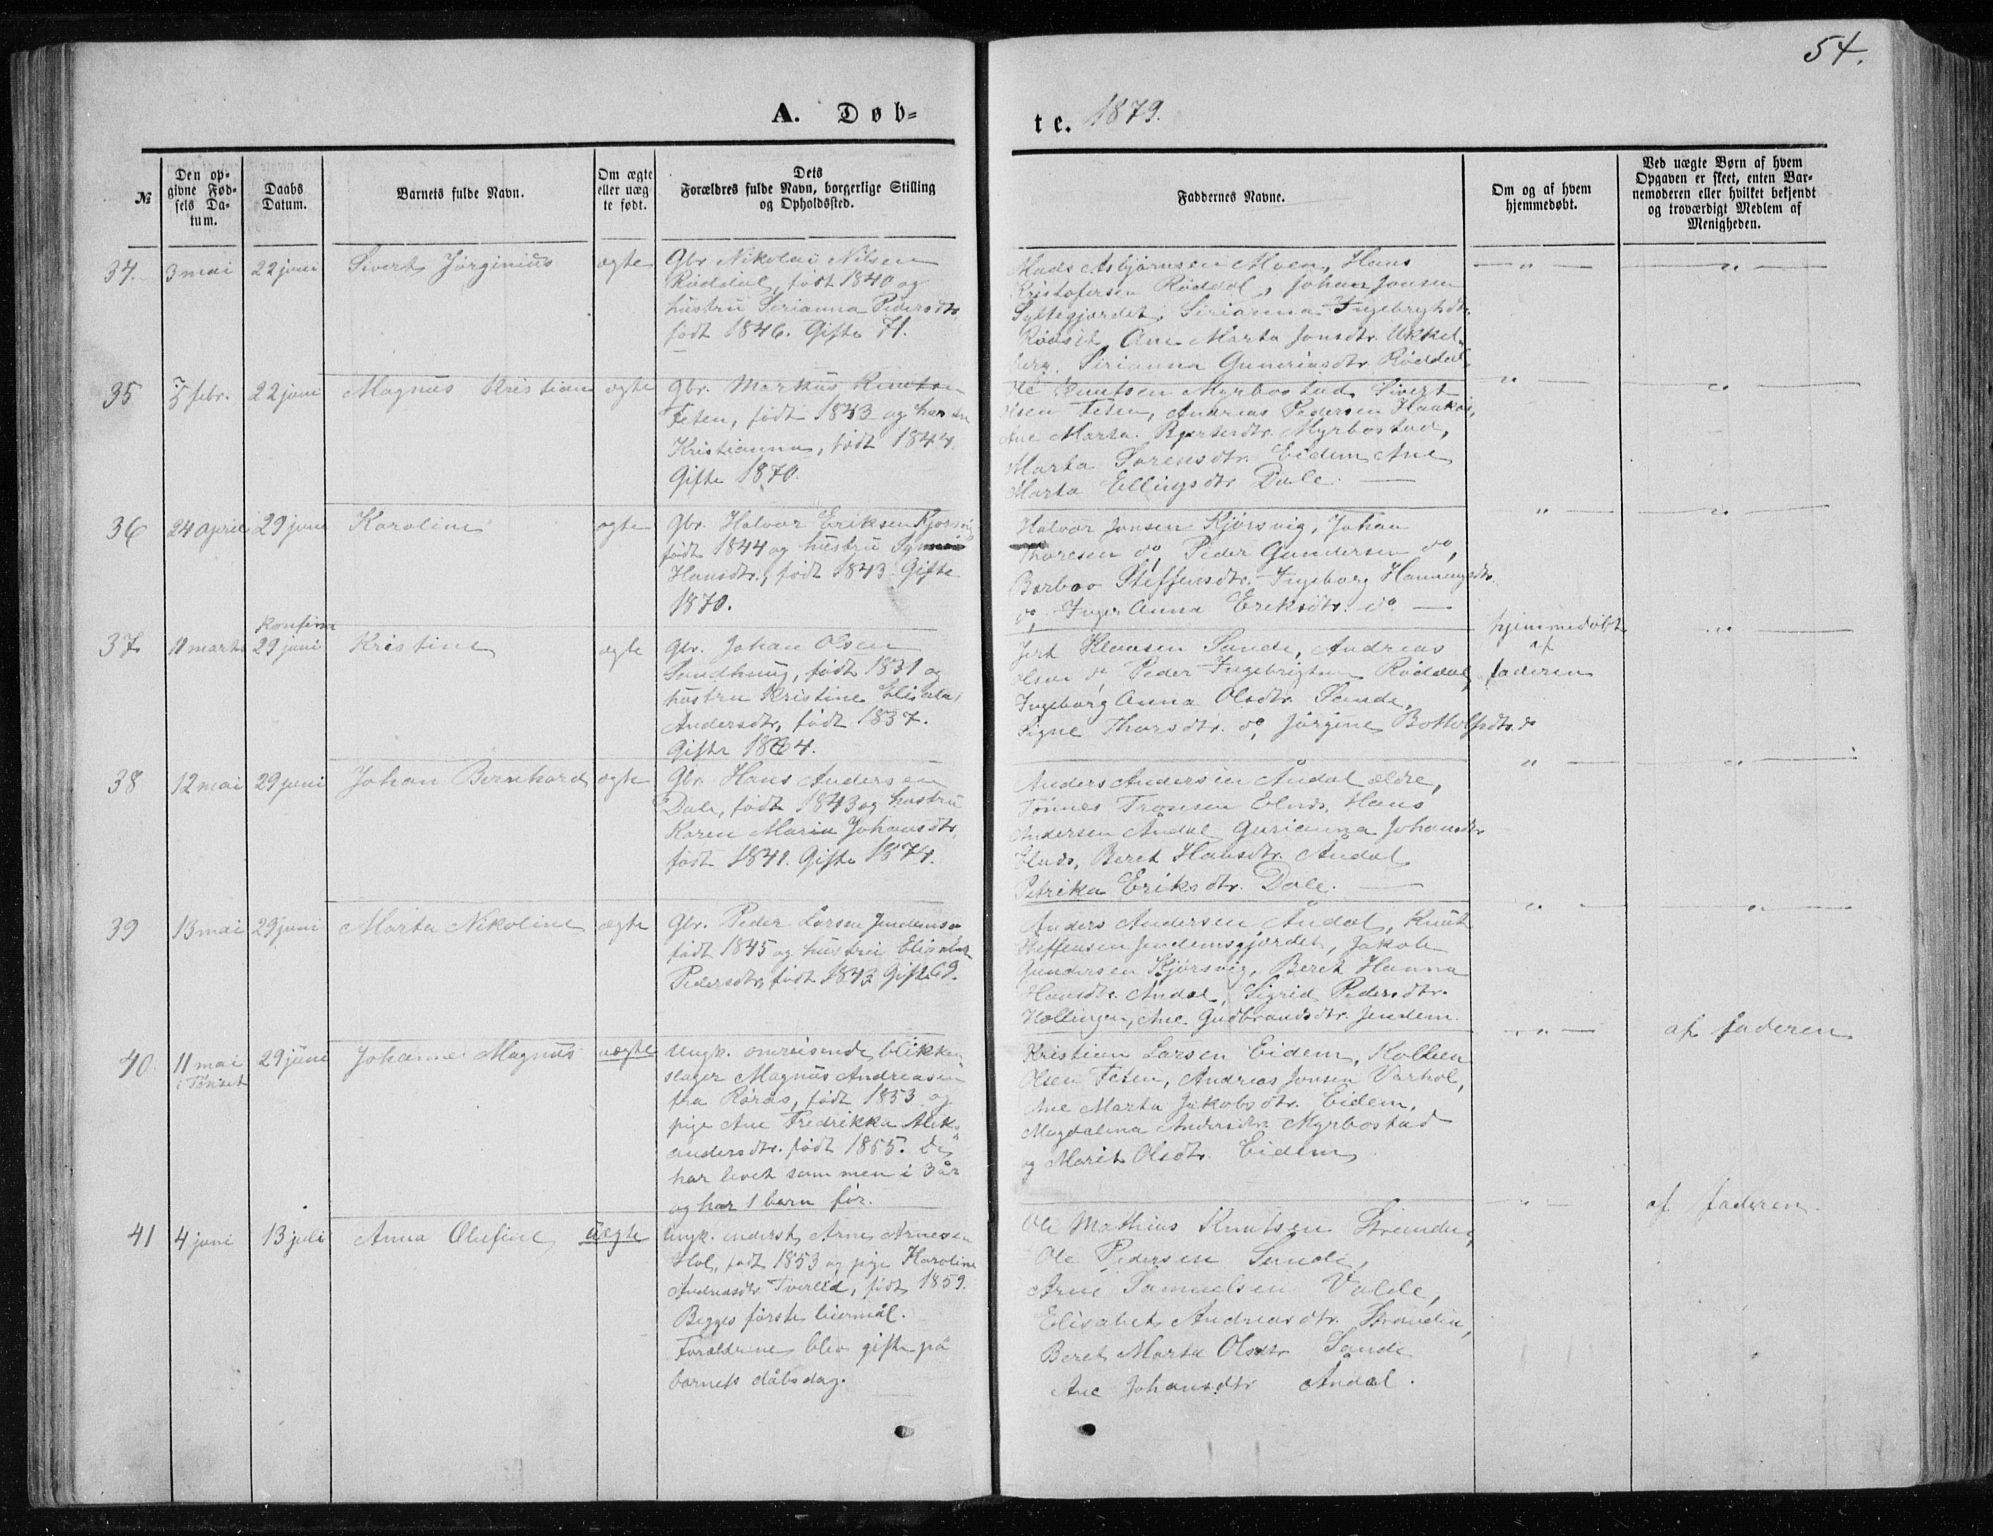 54.
A. Døb=
te. 1879.
№
Den op-
givne Fød-
sels Da-
tum.
Daabs
Datum.
Barnets fulde Navn.
Om ægte
eller uæg
te født.
Dets
Forældres fulde Navn, borgerlige Stilling
og Opholdssted.
Faddernes Navne.
Om og af hvem
hjemmedøbt.
Ved uægte Børn af hvem
Opgaven er skeet, enten Bar-
nemoderen eller hvilket bekjendt
og troværdigt Medlem af
Menigheden.
34. 3 mai 22 juni Sivert Jørginius ægte
Gbr Nikolai Nilsen
Røddal, født 1840 og
hustru Serianna Pedersdtr.
født 1846. Gifte 71.
Mads Asbjørnsen Moen, Hans
Kristofersen Røddal, Johan Jonsen
Syltegjærdet, Serianna Ingebrigtsdtr.
Rødset, Ane Marta Jonsdtr.
berg, Serianna Røddal
35 5 febr. 22 juni Magnus Kristian ægte
Gbr. Markus Knutsen
Festen, født 1843 og
Kristianna, født 1844.
Gifte 1870.
Ole Knutsen Myrbostad, Sivert
Olsen, Andreas Pedersen
Ane Marta Myrbostad,
Marta Sørensdtr. Eidem, Ane
Marta Ellingsdtr. Dale.
36 24 april 29 juni Karoline ægte
Gbr. Halvor Eriksen Kjørsvig
født 1844 og hustru
Hansdtr., født 1843. Gifte
1870.
Halvor Jonsen Kjørsvig, Johan
Thoresen do, Peder Gundersen do,
Steffensdtr. Ingeborg
do, Inger Anna Eriksdtr. do
37 11 marts
konfirm
29 juni Kristine ægte
Gbr. Johan Olsen
Sandhaug, født 1831 og
hustru Kristine
Andersdtr., født 1837.
Gifte 1864.
Klausen Sande, Andreas
Olsen do, Peder Ingebrigtsen Røddal,
Ingeborg Anna Olsdtr. Sande,
Signe Thorsdtr. do, Jørgine Bottolfsdtr. do
hjemmedøbt
af
faderen
38 12 mai 29 juni Johan Bernhard ægte
Gbr. Hans Andersen
Dale, født 1843 og hustru
Karen Maria Johansdtr.
født 1841. Gifte 1874.
Anders Andersen Åndal ældre,
Tønnes Tronsen Elnes, Hans
Andersen Åndal, Gurianna Johansdtr.
Elnes, Beret Hansdtr. Åndal
Petrika Eriksdtr. Dale.
39 13 mai 29 juni Marta Nikoline ægte
Gbr. Peder Larsen
født 1845 og hustru
Pedersdtr. født 1843 Gifte 69.
Anders Andersen Åndal, Knut
Steffensen Jendemsgjærdet, Jakob
Gundersen Kjørsvig, Beret Hanna
Hansdtr. Åndal, Sigrid Pedersdtr.
Hollingen, Ane Gudbrandsdtr. Jendem.
40. 11 mai 29 juni Johannes Magnus uægte
i Tønset
Ungk. omreisende blikken
slager Magnus Andreasen
fra Røros, født 1853 og
pige Ane Fredrikka Alek-
andersdtr. født 1855. De
har levet sammen i 3 år
og har 1 barn før.
Kristian Larsen Eidem,
Olsen, Andreas Jonsen Varhol,
Ane Marta Jakobsdtr. Eidem,
Magdalena Andersdtr. Myrbostad
og Marit Olsdtr. Eidem
af faderen
41 4 juni 13 juli Anna Olufine uægte
Ungk. inderst Arne Arnesen
Hol, født 1853 og pige Karoline
Andreasdtr. Tverlid, født 1859.
Begges første leiermål.
Forældrene blev gifte på
barnets dåbsdag.
Ole Mathias Knutsen Stranden,
Ole Pedersen Sande,
Arne Samuelsen Valde,
Elisabet Andreasdtr. Stranden,
Beret Marta Olsdtr Sande
Ane Johansdtr Åndal.
af faderen.